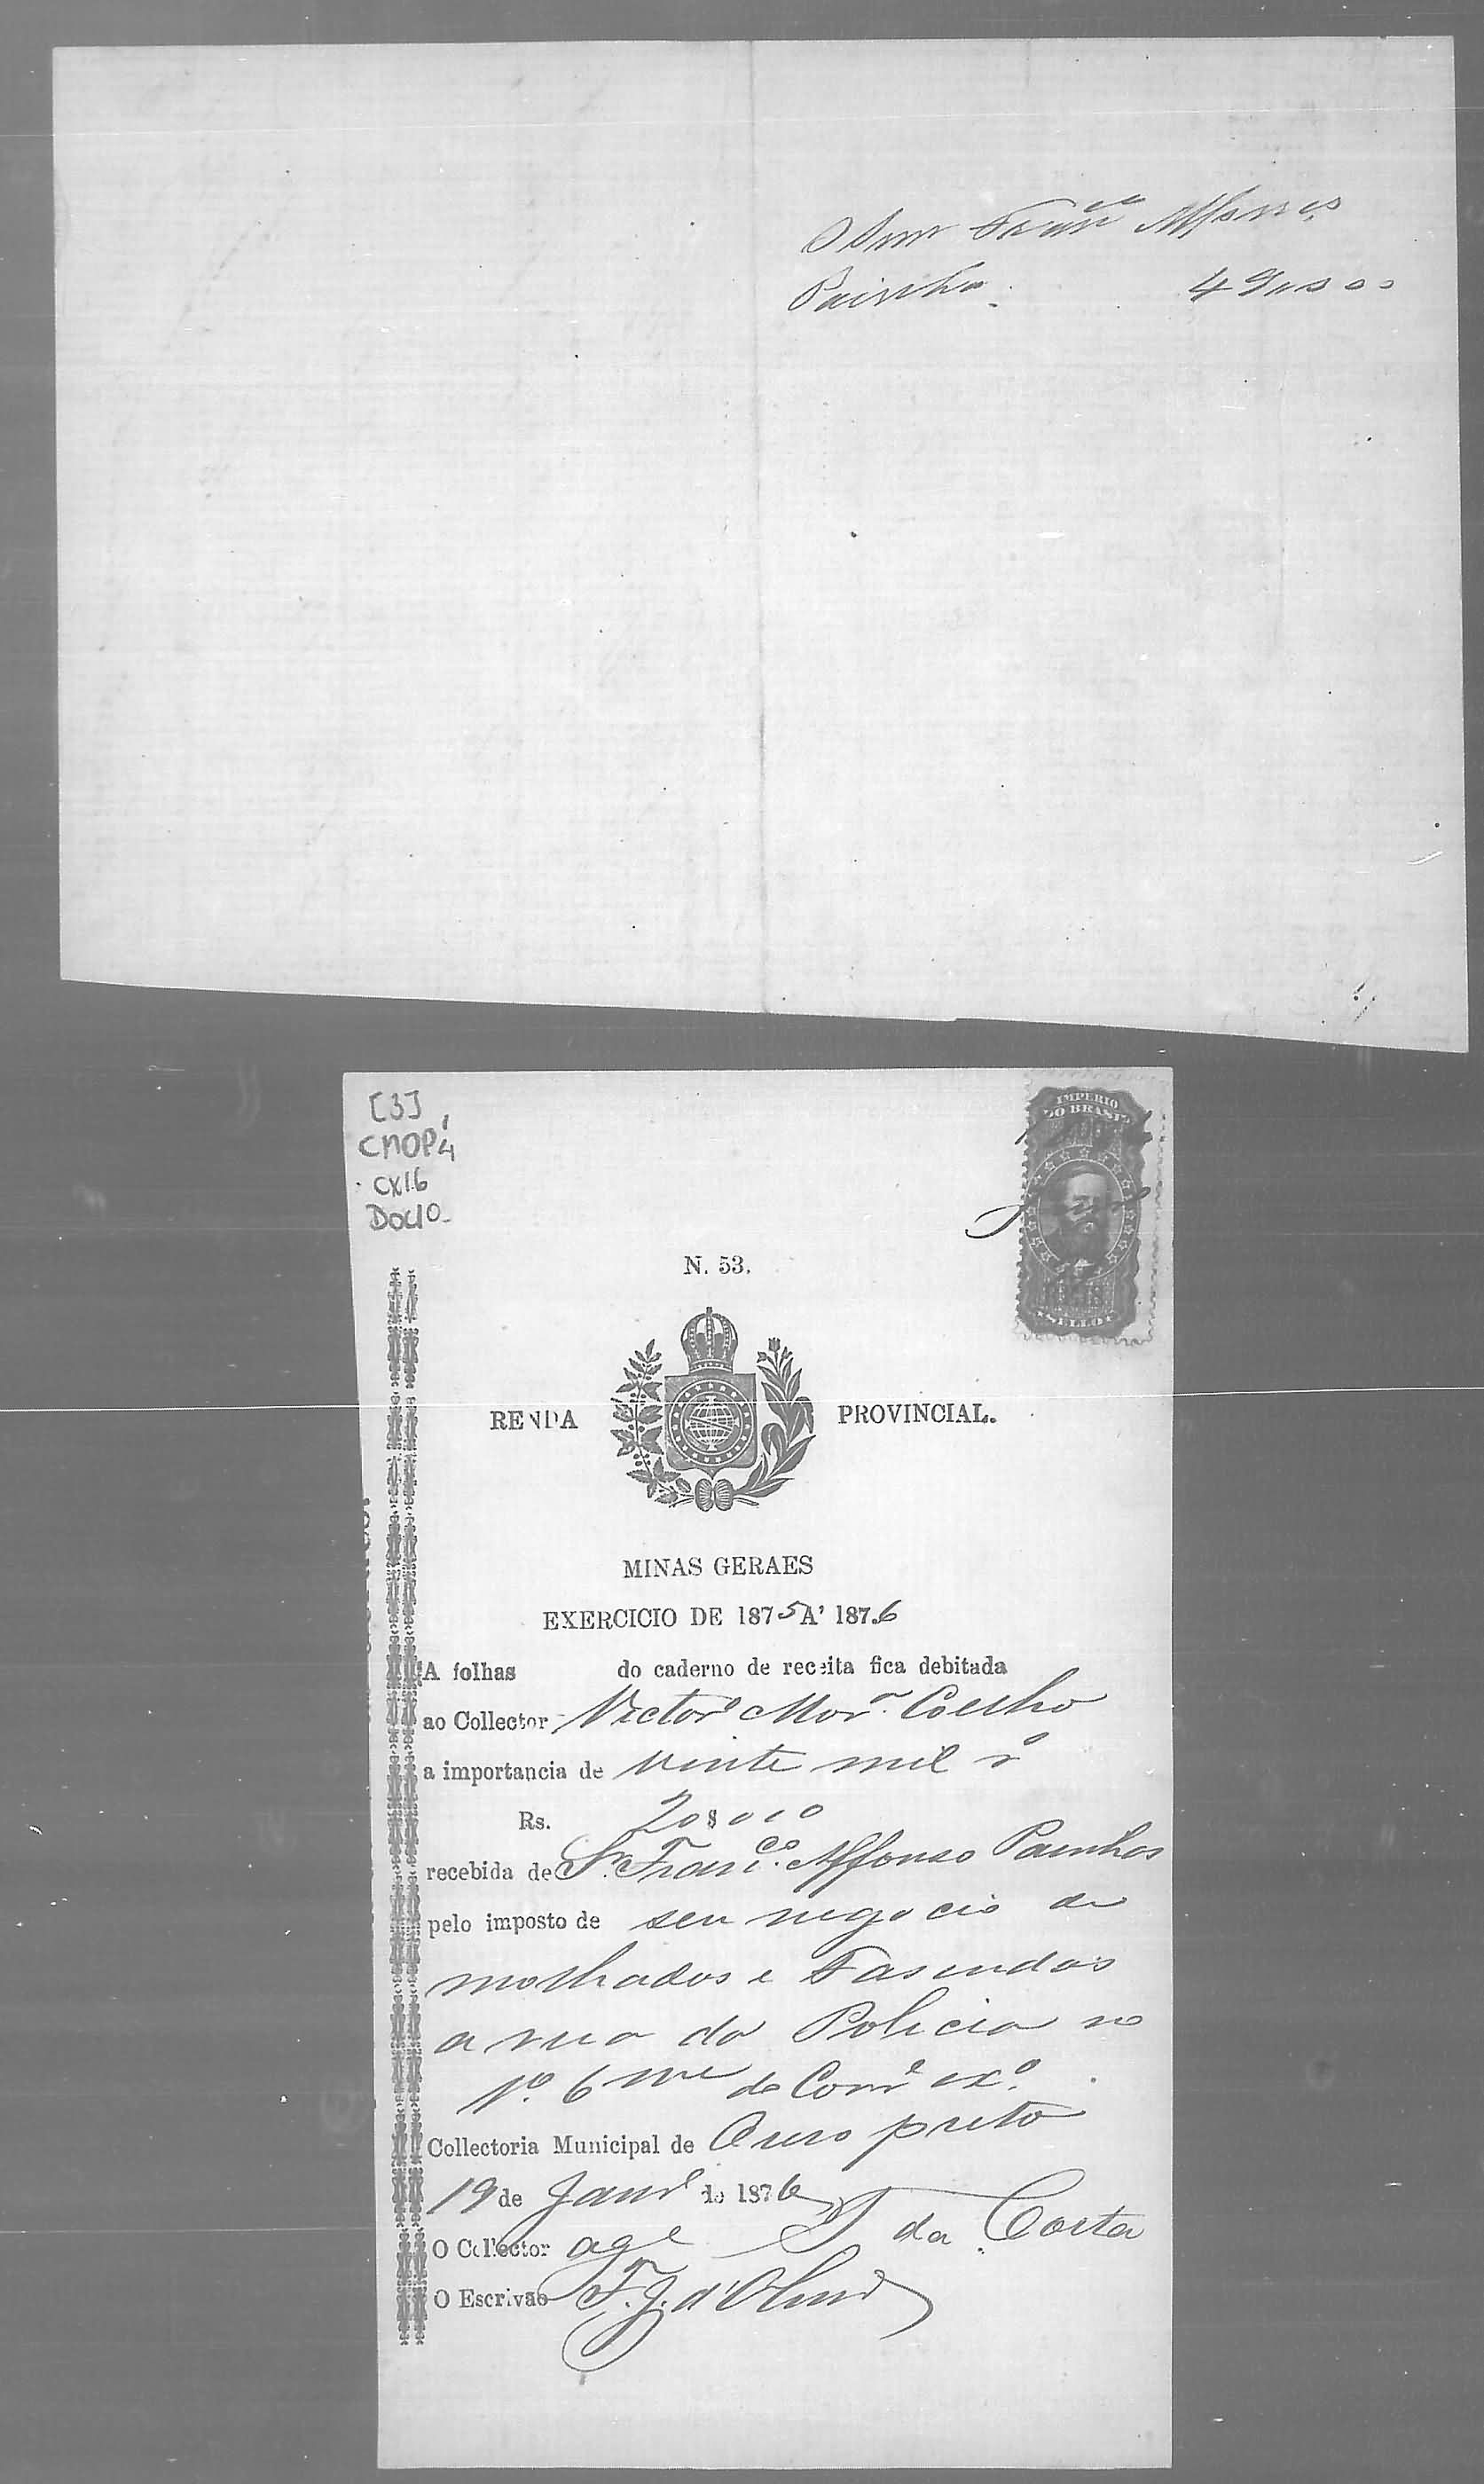 O Snr Franco Affonso
Painha 49,,000
[3]
CMOP
CX16
Doc10
IMPERIO
DO BRASIL
SELLO
N. 53.
RENDA PROVINCIAL.
MINAS GERAES
EXERCICIO DE 1875 A' 1876
A folhas do caderno de receita fica debitada
ao Collector Victore Mora. Coelho
a importancia de vinte mil rs
Rs. 20$000
recebida de Sr. Franco. Affonso Painhas
pelo imposto de seu negocio de
molhados e Fasendas
a rua da Policia no
1o. 6me de Corre exo.
Collectoria Municipal de Ouro preto
19 de Janro de 1876
O Collector da Costa
O Escrivão F. J. d'Olivra